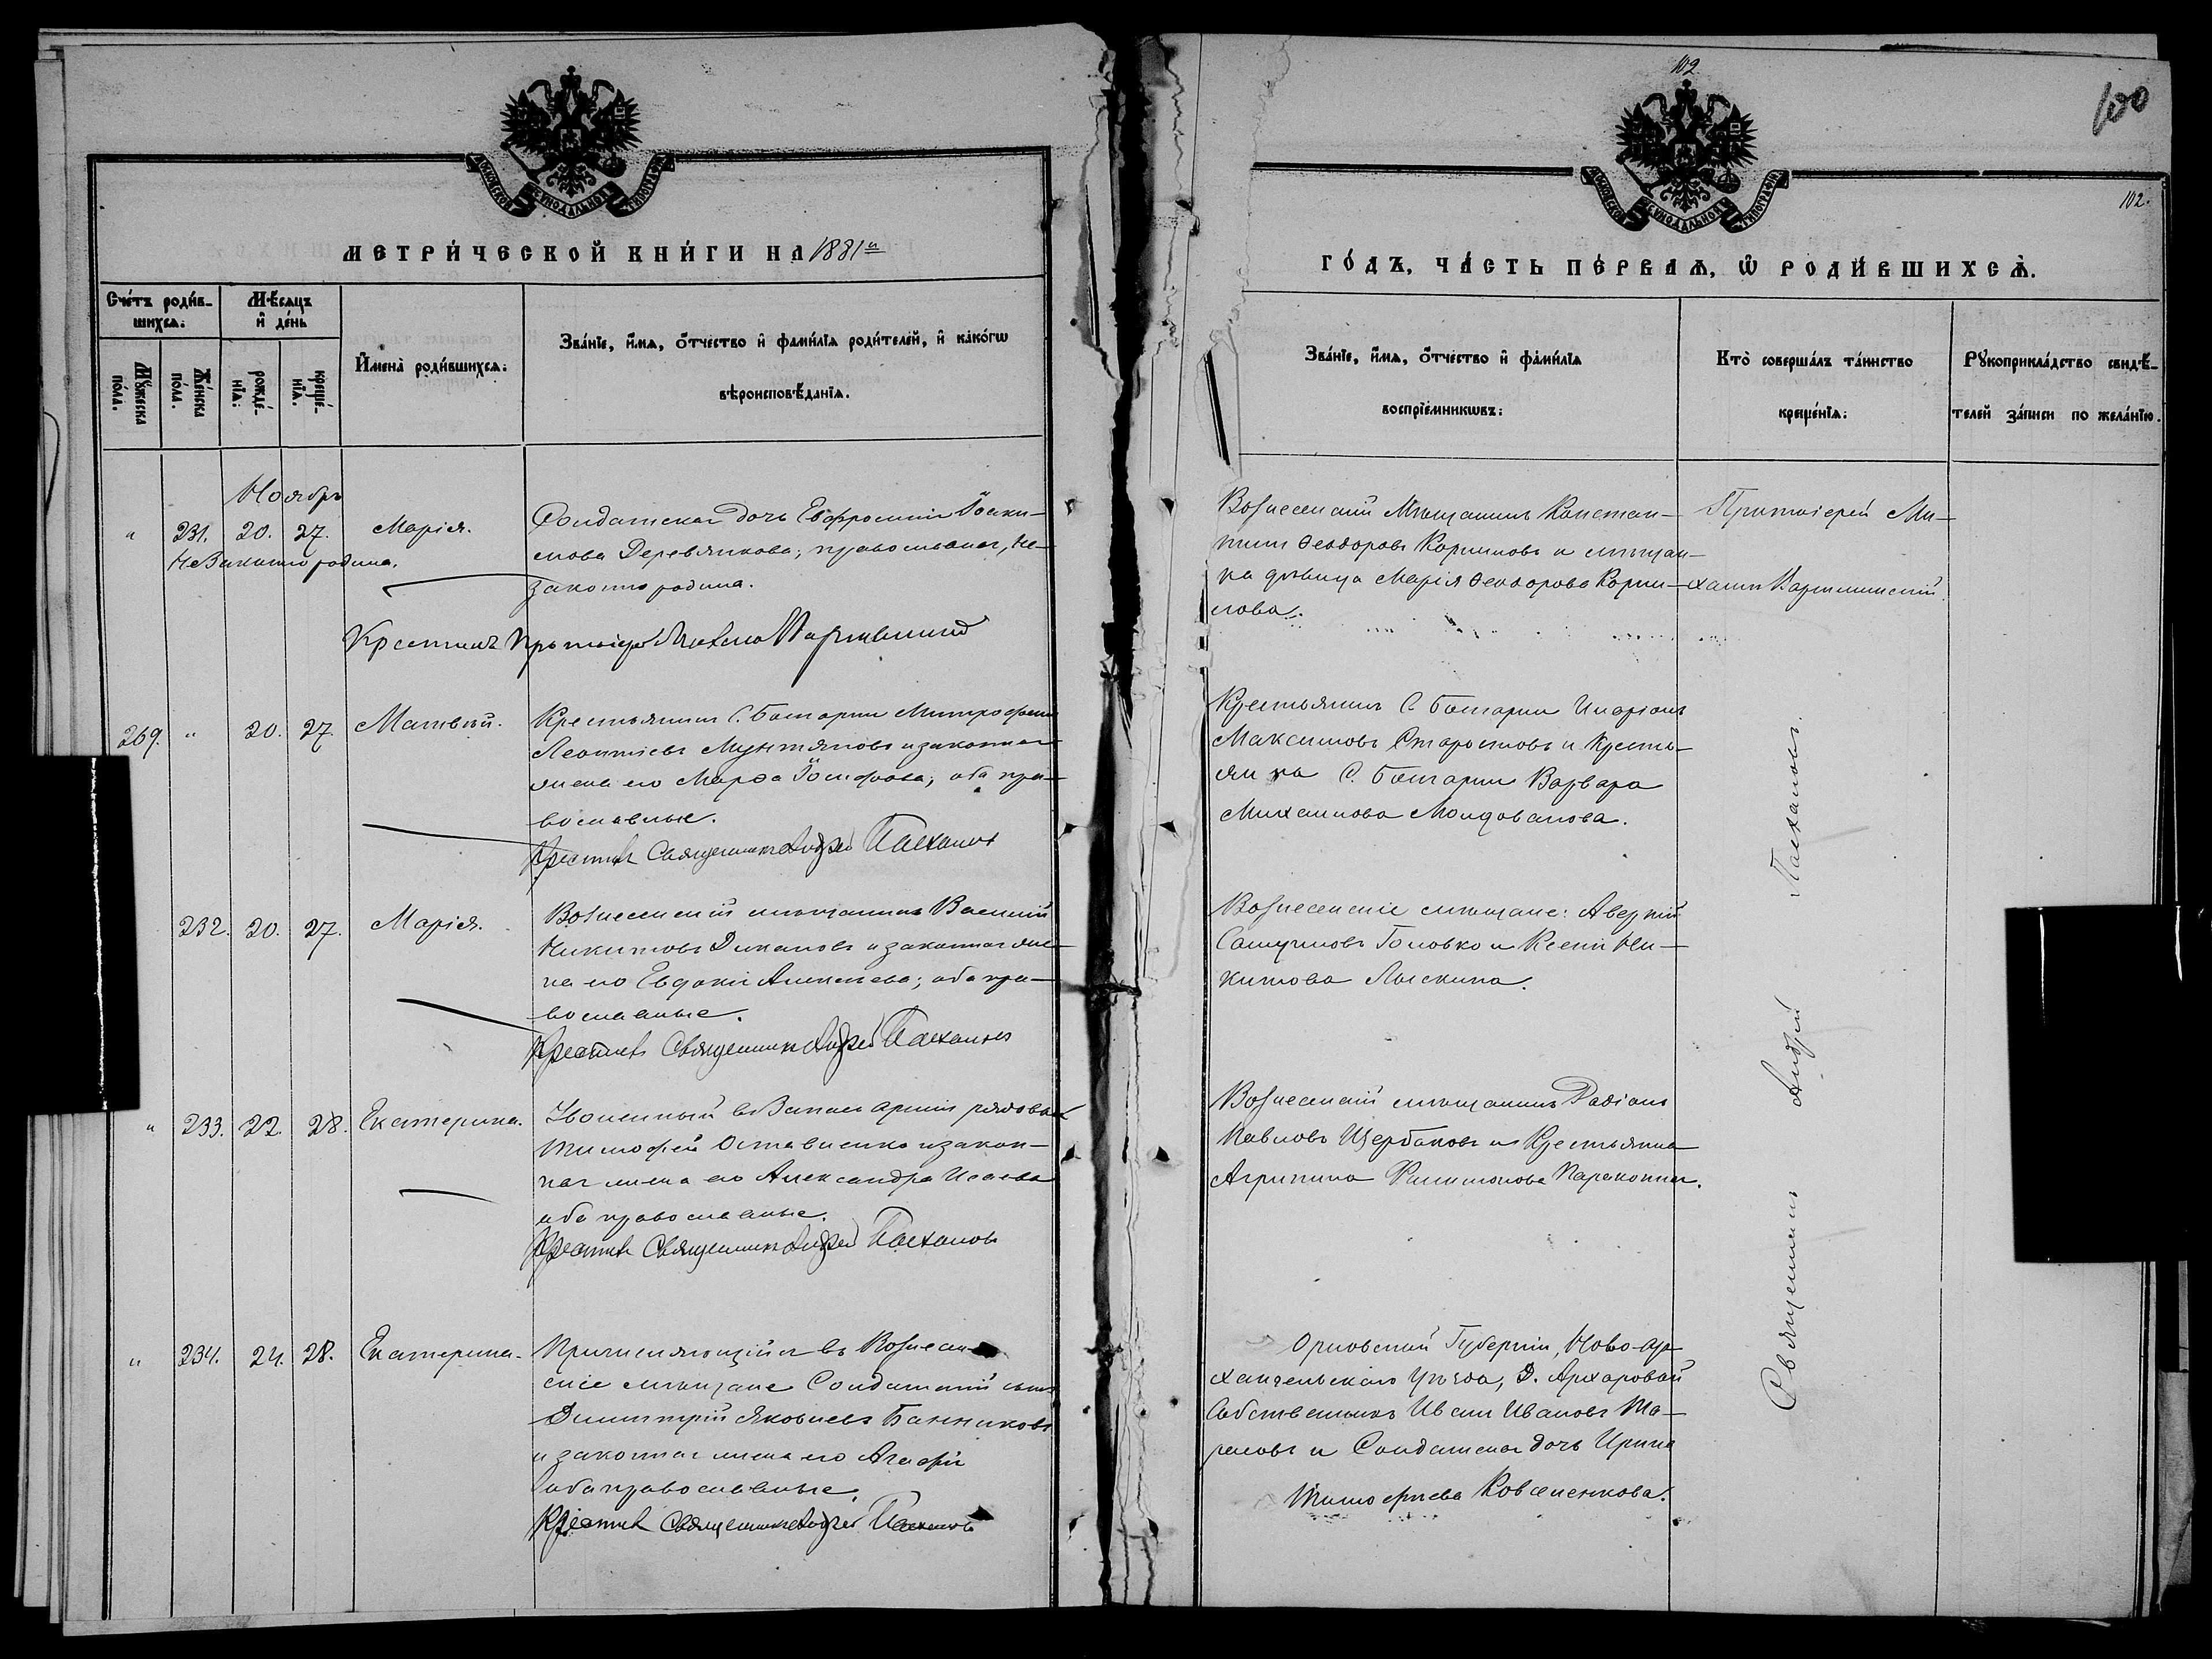 МОСКОВСКОЙ СѴНОДАЛЬНОЙ ТИПОГРАФІИ
МЕТРИ́ЧЕСКОЙ КНИ́ГИ НА 1881й
Сче́тъ роди́в-
шихся:
Мѣ́сяцъ
и҆ де́нь
Мꙋ́жеска
по́ла.
Же́нска
по́ла.
рожде́-
нїѧ:
креще́-
нїѧ.
И҆мена̀ роди́вшихсѧ:
Зва́нїе, и҆́мѧ, ѻ҆́тчество и҆ фами́лїѧ роди́телей, и҆ како́гѡ
вѣроисповѣ́данїѧ.
Ноябрь
" 231. 20. 27. Марія.
Незаконнорождена.
Солдатская дочь Евфросинія Іоаки-
мова Деревянкова; православная, не-
законнорождена.
Крестилъ Протоіерей Михаилъ
269. " 20. 27. Матвѣй.
Крестьянинъ С. Болгарки Митрофанъ
Леонтіевъ Мунтяновъ и законная
жена его Марѳа Іосифова; оба пра-
вославные.
Крестилъ Священникъ Андрей Пасхаловъ
232. 20. 27. Марія.
Вознесенскій мѣщанинъ Василій
Никитовъ Дикановъ и законная же-
на его Евдокія Алексѣева; оба пра-
вославные.
Крестилъ Священникъ Андрей Пасхаловъ
" 233. 22. 28. Екатерина.
Уволенный въ Запасъ арміи рядовой
Тимофей Остависнко и закон-
ная жена его Александра Исаева
оба православные.
Крестилъ Священникъ Андрей Пасхаловъ
" 234. 24. 28. Екатерина.
Причисляющійся въ Вознесен-
скіе мѣщане Солдатскій сынъ
Димитрій Яковлевъ Банниковъ
и законная жена его Агафія
оба православные.
Крестилъ Священникъ Андрей Пасхаловъ
102
100
МОСКОВСКОЙ СѴНОДАЛЬНОЙ ТИПОГРАФІИ
102.
ГО́ДЪ, ЧА́СТЬ ПЕ́РВАѦ, Ѡ҆ РОДИ́ВШИХСѦ.
Зва́нїе, и҆́мѧ, ѻ҆́тчество и҆ фами́лїѧ
воспрїе́мникѡвъ:
Кто̀ соверша́лъ та́инство
креще́нїѧ:
Рꙋкоприкла́дство свидѣ́-
телей за́писи по жела́нїю.
Вознесенскій Мѣщанинъ Констан-
тинъ Ѳеодоровъ Корниловъ и мѣщан-
ка дѣвица Марія Ѳеодорова Корни-
лова.
Протоіерей Ми-
хаилъ
Крестьянинъ С. Болгарки Иларіонъ
Максимовъ Старостовъ и Кресть-
янка С. Болгарки Варвара
Михаилова Молдованова.
Вознесенскіе мѣщане: Аверкій
Самуиловъ Головко и Ксенія Ни-
китова Лыскина.
Вознесенскій мѣщанинъ Радіонъ
Павловъ Щербаковъ и Крестьянка
Агрипина Филимонова
Орловской Губерніи, Ново-ар-
хангельскаго Уѣзда, Д. Архаровой
Собственникъ Иванъ Ивановъ
и Солдатская дочь Ирина
Тимофѣева Коваленкова.
Священникъ Андрей Пасхаловъ.